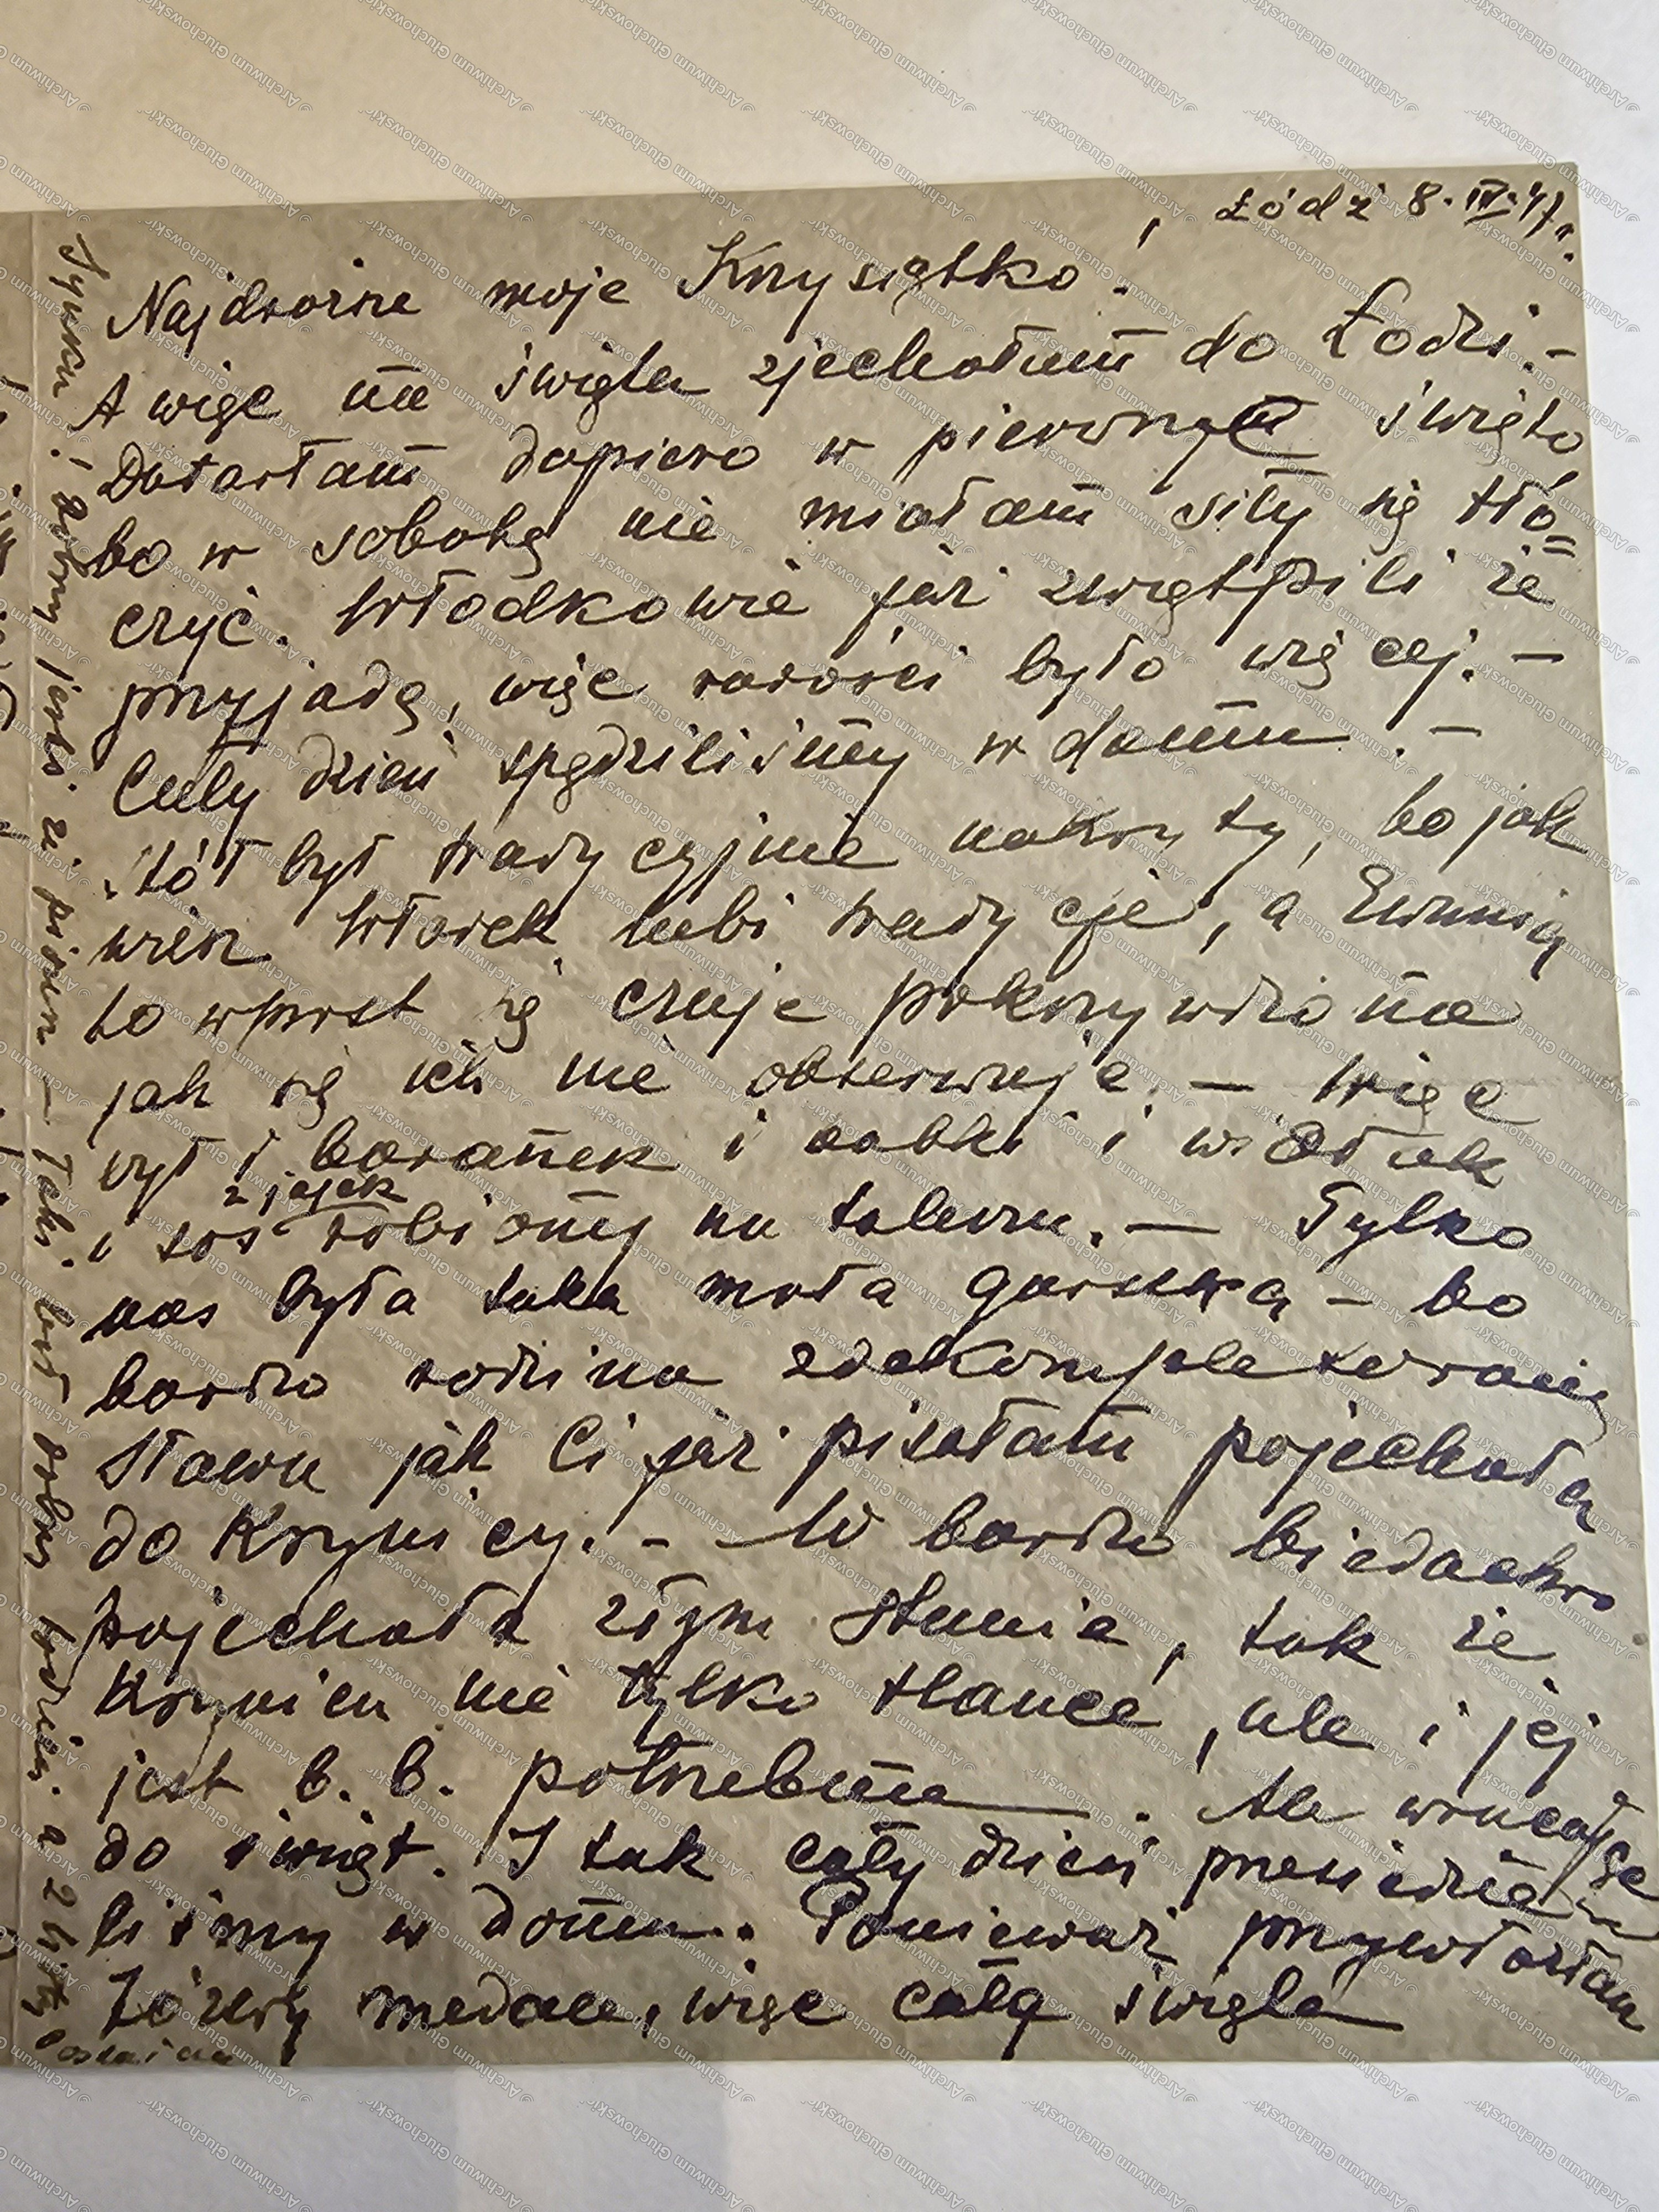 Łódź 8.IV.47r.
Najdroższe moje Krysiątko!
A więc na święta zjechałam do Łodzi. –
Dotarłam dopiero w pierwszym święto,
bo w sobotę nie miałam siły się tło=
czyć. Włodkowie już zwątpili że
przyjadę, więc radości było więcej. –
Cały dzień spędziliśmy w domu. –
Stół był tradycyjnie nakryty, bo jak
wiesz Włodek lubi tradycje, a Ewunia
to wprost się czuje pokrzywdzona
jak się ich nie obserwuje. – Więc
był i baranek i babki i wiatuk
z jajek
i sos robiony na talerzu. – Tylko
nas była taka mała garstka – bo
bardzo rodzina zdekompletowana
Sława jak Ci już pisałam pojechała
do Krynicy. – W bardzo biedactwo
pojechała złym stanie, tak że
Krynica nie tylko Hance, ale i jej
jest b. b. potrzebna. Ale wracając
do świąt. I tak cały dzień przesiedzie=
liśmy w domu. Ponieważ przywiozłam
medace, więc całą święta
jesteś że piszesz – Taki był dobry
a 2
© Archiwum Głuchowskich